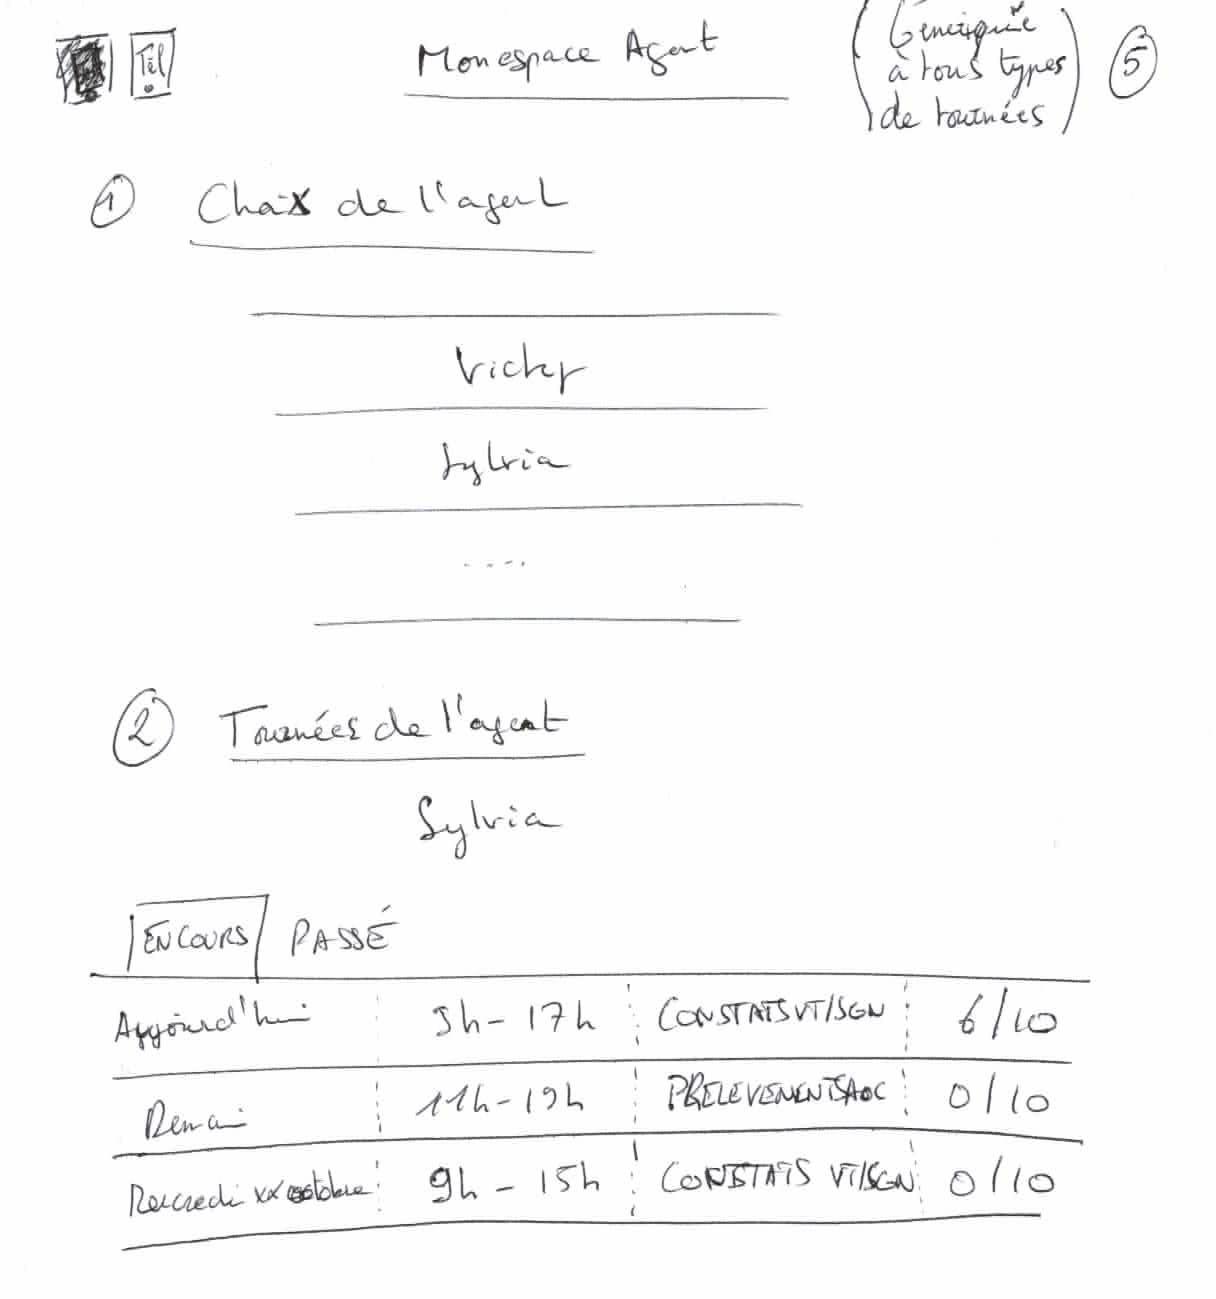 Tél
Mon espace Agent
(Générique
à tous types
de tournées)
5
1 Choix de l'agent
Vicky
Sylvia
....
2 Tournées de l'agent
Sylvia
EN COURS PASSÉ
Aujourd'hui 9h - 17h CONSTATS VT/SGN 6/10
Demain 11h - 19h PRELEVEMENTS AOC 0/10
Mercredi xx octobre 9h - 15h CONSTATS VT/SGN 0/10